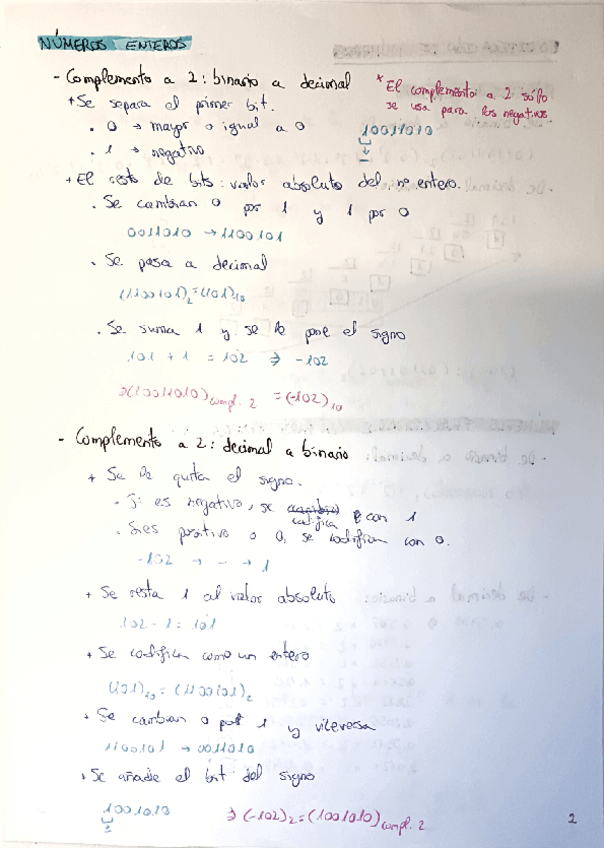 NÚMEROS ENTEROS
- Complemento a 2: binario a decimal
* El complemento a 2 sólo
se usa para los negativos.
+ Se separa el primer bit.
. 0 → mayor o igual a 0
10011010
. 1 → negativo
-
+ El resto de bits: valor absoluto del nº entero.
. Se cambian 0 por 1 y 1 por 0
0011010 → 1100101
. Se pasa a decimal
(1100101)₂ = (101)₁₀
. Se suma 1 y se le pone el signo
101 + 1 = 102 ⇒ -102
(10011010)compl. 2 = (-102)₁₀
- Complemento a 2: decimal a binario
+ Se le quita el signo.
. Si es negativo, se codifica con 1
. Si es positivo o 0, se codifican con 0.
-102 → - → 1
+ Se resta 1 al valor absoluto
102 - 1 = 101
+ Se codifica como un entero
(101)₁₀ = (1100101)₂
+ Se cambian 0 por 1 y viceversa
1100101 → 0011010
+ Se añade el bit del signo
1001010
(-102)₂ = (1001010)compl. 2
2